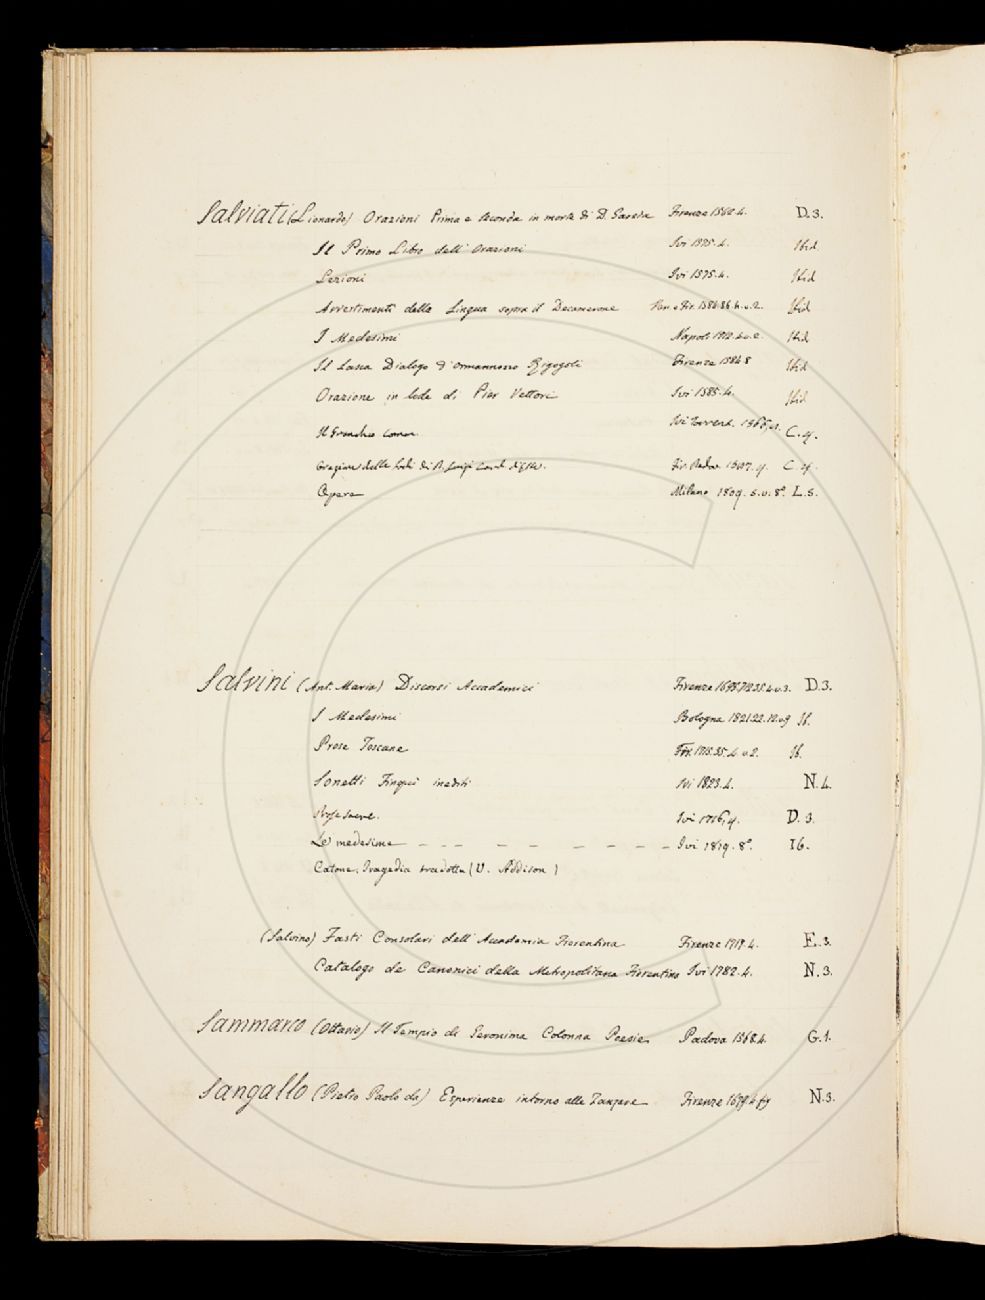 Salviati (Lionardo) Orazioni Prima e Seconda in morte di D. Garzia Firenze 1562. 4. D. 3.
Il Primo Libro dell' Orazioni Ivi 1575. 4. Ibid
Lezioni Ivi 1575. 4. Ibid
Avvertimenti della Lingua sopra il Decamerone Ven. e Fir. 1584.86. 4. v. 2. Ibid
I Medesimi Napoli 1712. 4. v. 2. Ibid
Il Lasca Dialogo d'Ormannozzo Rigogoli Firenze 1584. 8 Ibid
Orazione in lode di Pier Vettori Ivi 1585. 4. Ibid
Il Granchio Com. Ivi Torrent. 1566, 4. C. 4.
Orazione delle lodi di D. Luigi Card. d'Este. Fir. Pado. 1587. 4. C. 4.
Opere Milano 1809. 5. v. 8° L. 5.
Salvini (Ant. Maria) Discorsi Accademici Firenze 1695.1712.35. 4. v. 3. D. 3.
I Medesimi Bologna 1821.22. 12. v. 9 Ib.
Prose Toscane Fir. 1715.35. 4. v. 2. Ib.
Sonetti Finqui inediti Ivi 1823. 4. N. 4.
Prose Sacre. Ivi 1716, 4. D. 3.
Le medesime – – – – – – – – Ivi 1819. 8°. Ib.
Catone, Tragedia tradotta (V. Addison)
(Salvino) Fasti Consolari dell' Accademia Fiorentina Firenze 1717. 4. E. 3.
Catalogo de Canonici della Metropolitana Fiorentina Ivi 1782. 4. N. 3.
Sammarco (Ottavio) Il Tempio di Geronima Colonna Poesie Padova 1568. 4. G. 1.
Sangallo (Pietro Paolo da) Esperienze intorno alle Zanzare Firenze 1679. 4. fig N. 3.